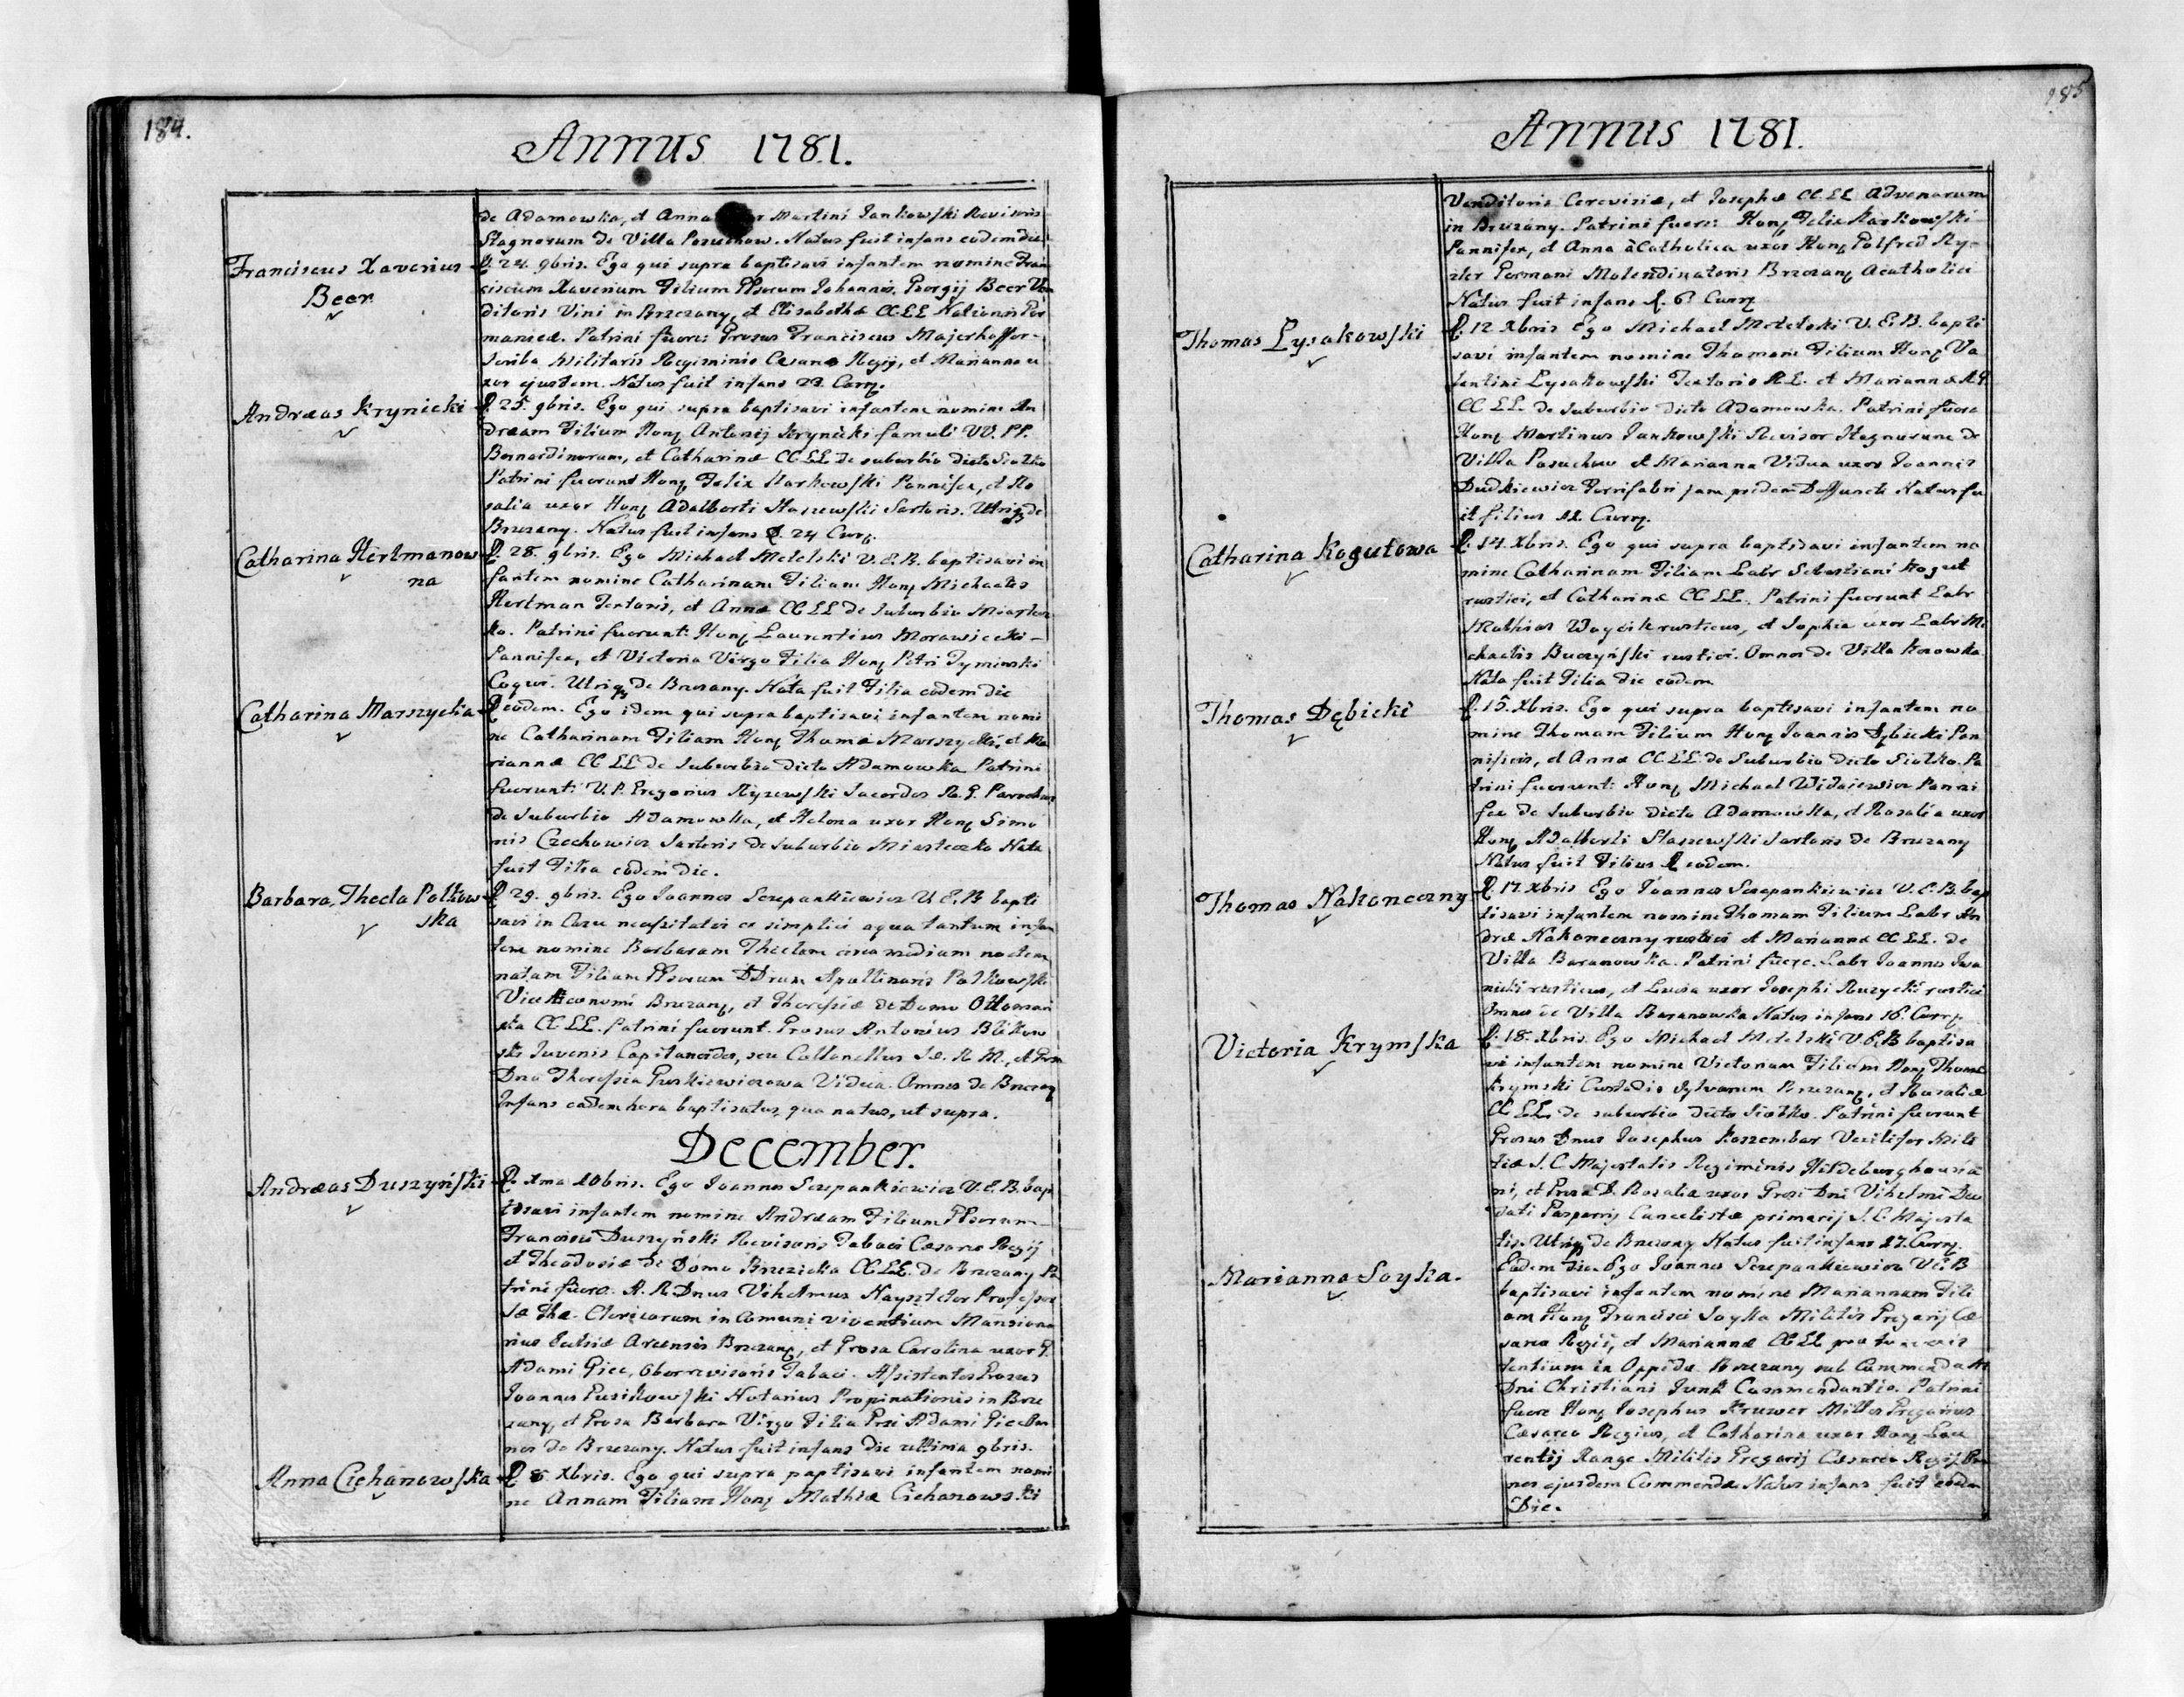 184.
Annus 1781.
de Adamowka, et Anna Martini Jankowski Revisoris
Stagnorum de Villa Posuchow. Natus fuit infans eodem die
Franciscus Xaverius
Beer
D. 24. 9bris. Ego qui supra baptisavi infantem nomine Fran
ciscum Xaverium Filium Johannis Georgij Beer Ven
ditoris Vini in Brzezany, et Elisabethæ CC.LL Nationis Ger
manicæ. Patrini fuere: Grosus Franciscus Majerhoffer
Scriba Militaris Regiminis Cæsareo Regij, et Marianna u
xor ejusdem. Natus fuit infans 23. Curr.
Andræas Krynicki
D. 25. 9bris. Ego qui supra baptisavi infantem nomine An
dræam Filium Hon. Antonij Krynicki famuli VV. PP.
Bernardinorum, et Catharinæ CC LL de suburbio dicto Siołko
Patrini fuerunt Hon. Felix Karkowski Pannifex, et Ro
salia uxor Hon. Adalberti Staszewski Sartoris. Utriq de
Brzezany. Natus fuit infans D. 24 Curr.
Catharina Hertmanow
na
D. 28. 9bris. Ego Michael Metelski V.E.B. baptisavi in
fantem nomine Catharinam Filiam Hon. Michaelis
Hertman Textoris, et Annæ CC LL de Suburbio Miastecz
ko. Patrini fuerunt: Hon. Laurentius Morawiecki
Pannifex, et Victoria Virgo Filia Hon. Petri Tyminski
Coqui. Utriq de Brzezany. Nata fuit Filia eodem die
Catharina Marszycka
D eodem. Ego idem qui supra baptisavi infantem nomi
ne Catharinam Filiam Hon. Thomæ Marszycki, et Ma
riannæ CC LL de Suburbio dicto Adamowka Patrini
fuerunt: V. P. Gregorius Ryzewski Sacerdos R. G. Parochus
de Suburbio Adamowka, et Helena uxor Hon. Simo
nis Czechowicz Sartoris de Suburbio Miasteczko Nata
fuit Filia eodem die.
Barbara, Thecla Polkow
ska
D 29. 9bris. Ego Joannes Szczepankiewicz V E.B bapti
savi in Casu necessitatis ex simplici aqua tantum infan
tem nomine Barbaram Theclam circa mediam noctem
natam Filiam DDrum Apollinaris Polkowski
Vice Œconomi Brzezan, et Theressiæ de Domo
CC LL. Patrini fuerunt. Grosus Antonius Blikow
ski Juvenis Capitaneides, seu Collonellus S. R. M., et
Dna Theressia Vidua. Omnes de Brzezan
Infans eadem hora baptisatus, qua natus, ut supra.
December.
Andræas Duszyński
D. xma 10bris. Ego Joannes Szczepankiewicz V.E.B. bap
tisavi infantem nomine Andræam Filium
Francisci Duszyński Revisoris Tabaci Cæsareo Regij
et Theodosiæ de Domo Brzezicka CC LL. de Brzezany Pa
trini fuere. A. R. Dnus Vihelmus Professor
Clericorum in Comuni viventium Mansiona
rius Arcensis Brzezan, et Grosa Carolina uxor G.
Adami Giec, Oberrevisoris Tabaci. Assistentes Grosus
Joannes Notarius Propinationis in Brze
zany, et Grosa Barbara Virgo Filia Grsi Adami Giec Om
nes de Brzezany. Natus fuit infans die ultima 9bris.
Anna Ciehanowska
D 8 Xbris. Ego qui supra paptisavi infantem nomi
ne Annam Filiam Hon. Mathiæ Ciehanowski
185
Annus 1781.
Venditoris Cerevisiæ, et Josephæ CC.LL Advenarum
in Brzezany. Patrini fuere: Hon. Felix Karkowski
Pannifex, et Anna àCatholica uxor Hon.
Germani Molendinatoris Brzezan Acatholici
Natus fuit infans d. 6 Curr.
Thomas Lysakowski
D. 12 Xbris Ego Michael Metelski V. E.B. bapti
savi infantem nomine Thomam Filium Hon. Va
lentini Lysakowski Textoris R.L. et Mariannæ R.G
CC LL. de Suburbio dicto Adamowka. Patrini fuere
Hon. Martinus Jankowski Revisor Stagnorum de
Villa Posuchow et Marianna Vidua uxor Joannis
Dudkiewicz Ferrifabri jam pridem Deffuncti Natus fu
it filius 11. Curr.
Catharina Kogutowa
D. 14. Xbris. Ego qui supra baptisavi infantem no
mine Catharinam Filiam Labr Sebastiani Kogut
rustici, et Catharinæ CC LL. Patrini fuerunt Labr
Mathias Woycik rusticus, et Sophia uxor Labr Mi
chaelis Buczyński rustici. Omnes de Villa Kozowka
Nata fuit Filia die eodem
Thomas Dębicki
D. 15. Xbris. Ego qui supra baptisavi infantem no
mine Thomam Filium Hon. Joannis Dębicki Pan
nificis, et Annæ CC LL. de Suburbio dicto Siołko. Pa
trini fuerunt: Hon. Michael Widaiewicz Panni
fex de Suburbio dicto Adamowka, et Rosalia uxor
Hon. Adalberti Staszewski Sartoris de Brzezany
Natus fuit Filius D eodem.
Thomas Nakoneczny
D. 17. Xbris Ego Joannes Szczepankiewicz V. E.B. bap
tisavi infantem nomine Thomam Filium Labr An
dreæ Nakoneczny rustici et Mariannæ CC LL. de
Villa Baranowka. Patrini fuere. Labr Joannes Iwa
nicki rusticus, et Lucia uxor Josephi Ruzycki rustici
Omnes de Villa Baranowka Natus infans 16. Curr.
Victoria Krymska
D. 18. Xbris. Ego Michael Metelski V.E.B baptisa
vi infantem nomine Victoriam Filiam Hon. Thomæ
Krymski Custodis Sylvarum Brzezan, et Rosaliæ
CC LL de suburbio dicto Siołko. Patrini fuerunt
Grosus Dnus Josephus Koszembar Vexilifer Mili
tiæ S. C. Majestatis Regiminis Hildeburghousia
ni, et Grosa D. Rosalia uxor Grosi Dni Vihelmi Deo
dati Gasparij Cancelistæ primarij S. C. Majesta
tis. Utriq de Brzezany Natus fuit infans 17. Curr.
Marianna Soyka.
Eadem Die. Ego Joannes Szczepankiewicz V E B
baptisavi infantem nomine Mariannam Fili
am Hon. Francisci Soyka Militis Gregarij Cæ
sareo Regii, et Mariannæ CC LL pro tunc exis
tentium in Oppido Brzezany sub Commenda
Dni Christiani Junk Commendantis. Patrini
fuere Hon. Josephus Kruwer Miles Gregarius
Cæsareo Regius, et Catharina uxor Hon. Lau
rentij Range Militis Gregarij Cæsareo Regij. Om
nes ejusdem Commendæ Natus infans fuit eodem
Die.